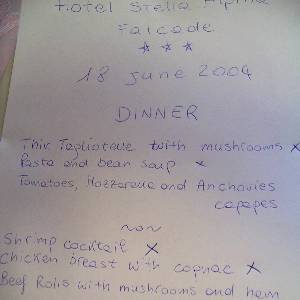 Hotel Stella Alpina
Falcade
☆ ☆ ☆
18 June 2004
DINNER
Thin Tagliatelle with mushrooms x
Pasta and bean soup x
Tomatoes, Mozzarella and Anchovies
~o~
Shrimp cocktail X
Chicken breast with cognac X
Beef Rolls with mushrooms and ham